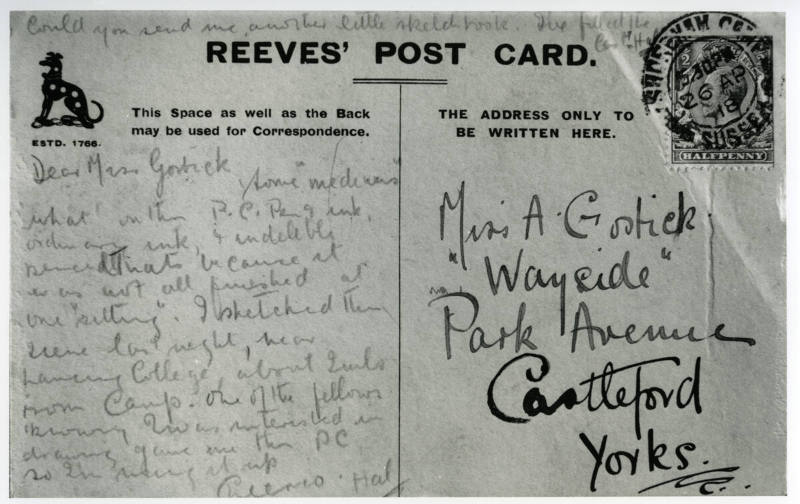 Could you send me another little sketch book. I've filled the
REEVES' POST CARD.
ESTD. 1766.
This Space as well as the Back
may be used for Correspondence.
THE ADDRESS ONLY TO
BE WRITTEN HERE.
26 AP
18
SUSSEX
HALFPENNY
Dear Miss Gostick
Some
what" on this P.C. Pen & ink,
ordinary ink, & indelible
pencil. That's because it
was not all finished at
one "sitting". I sketched this
scene last night, near
Lancing College about 2 mls
from Camp. One of the fellows
knowing I was interested in
drawing gave me this PC
so I'm using it up
Cheerio. Hal
Miss A. Gostick
"Wayside"
Park Avenue
Castleford
Yorks.